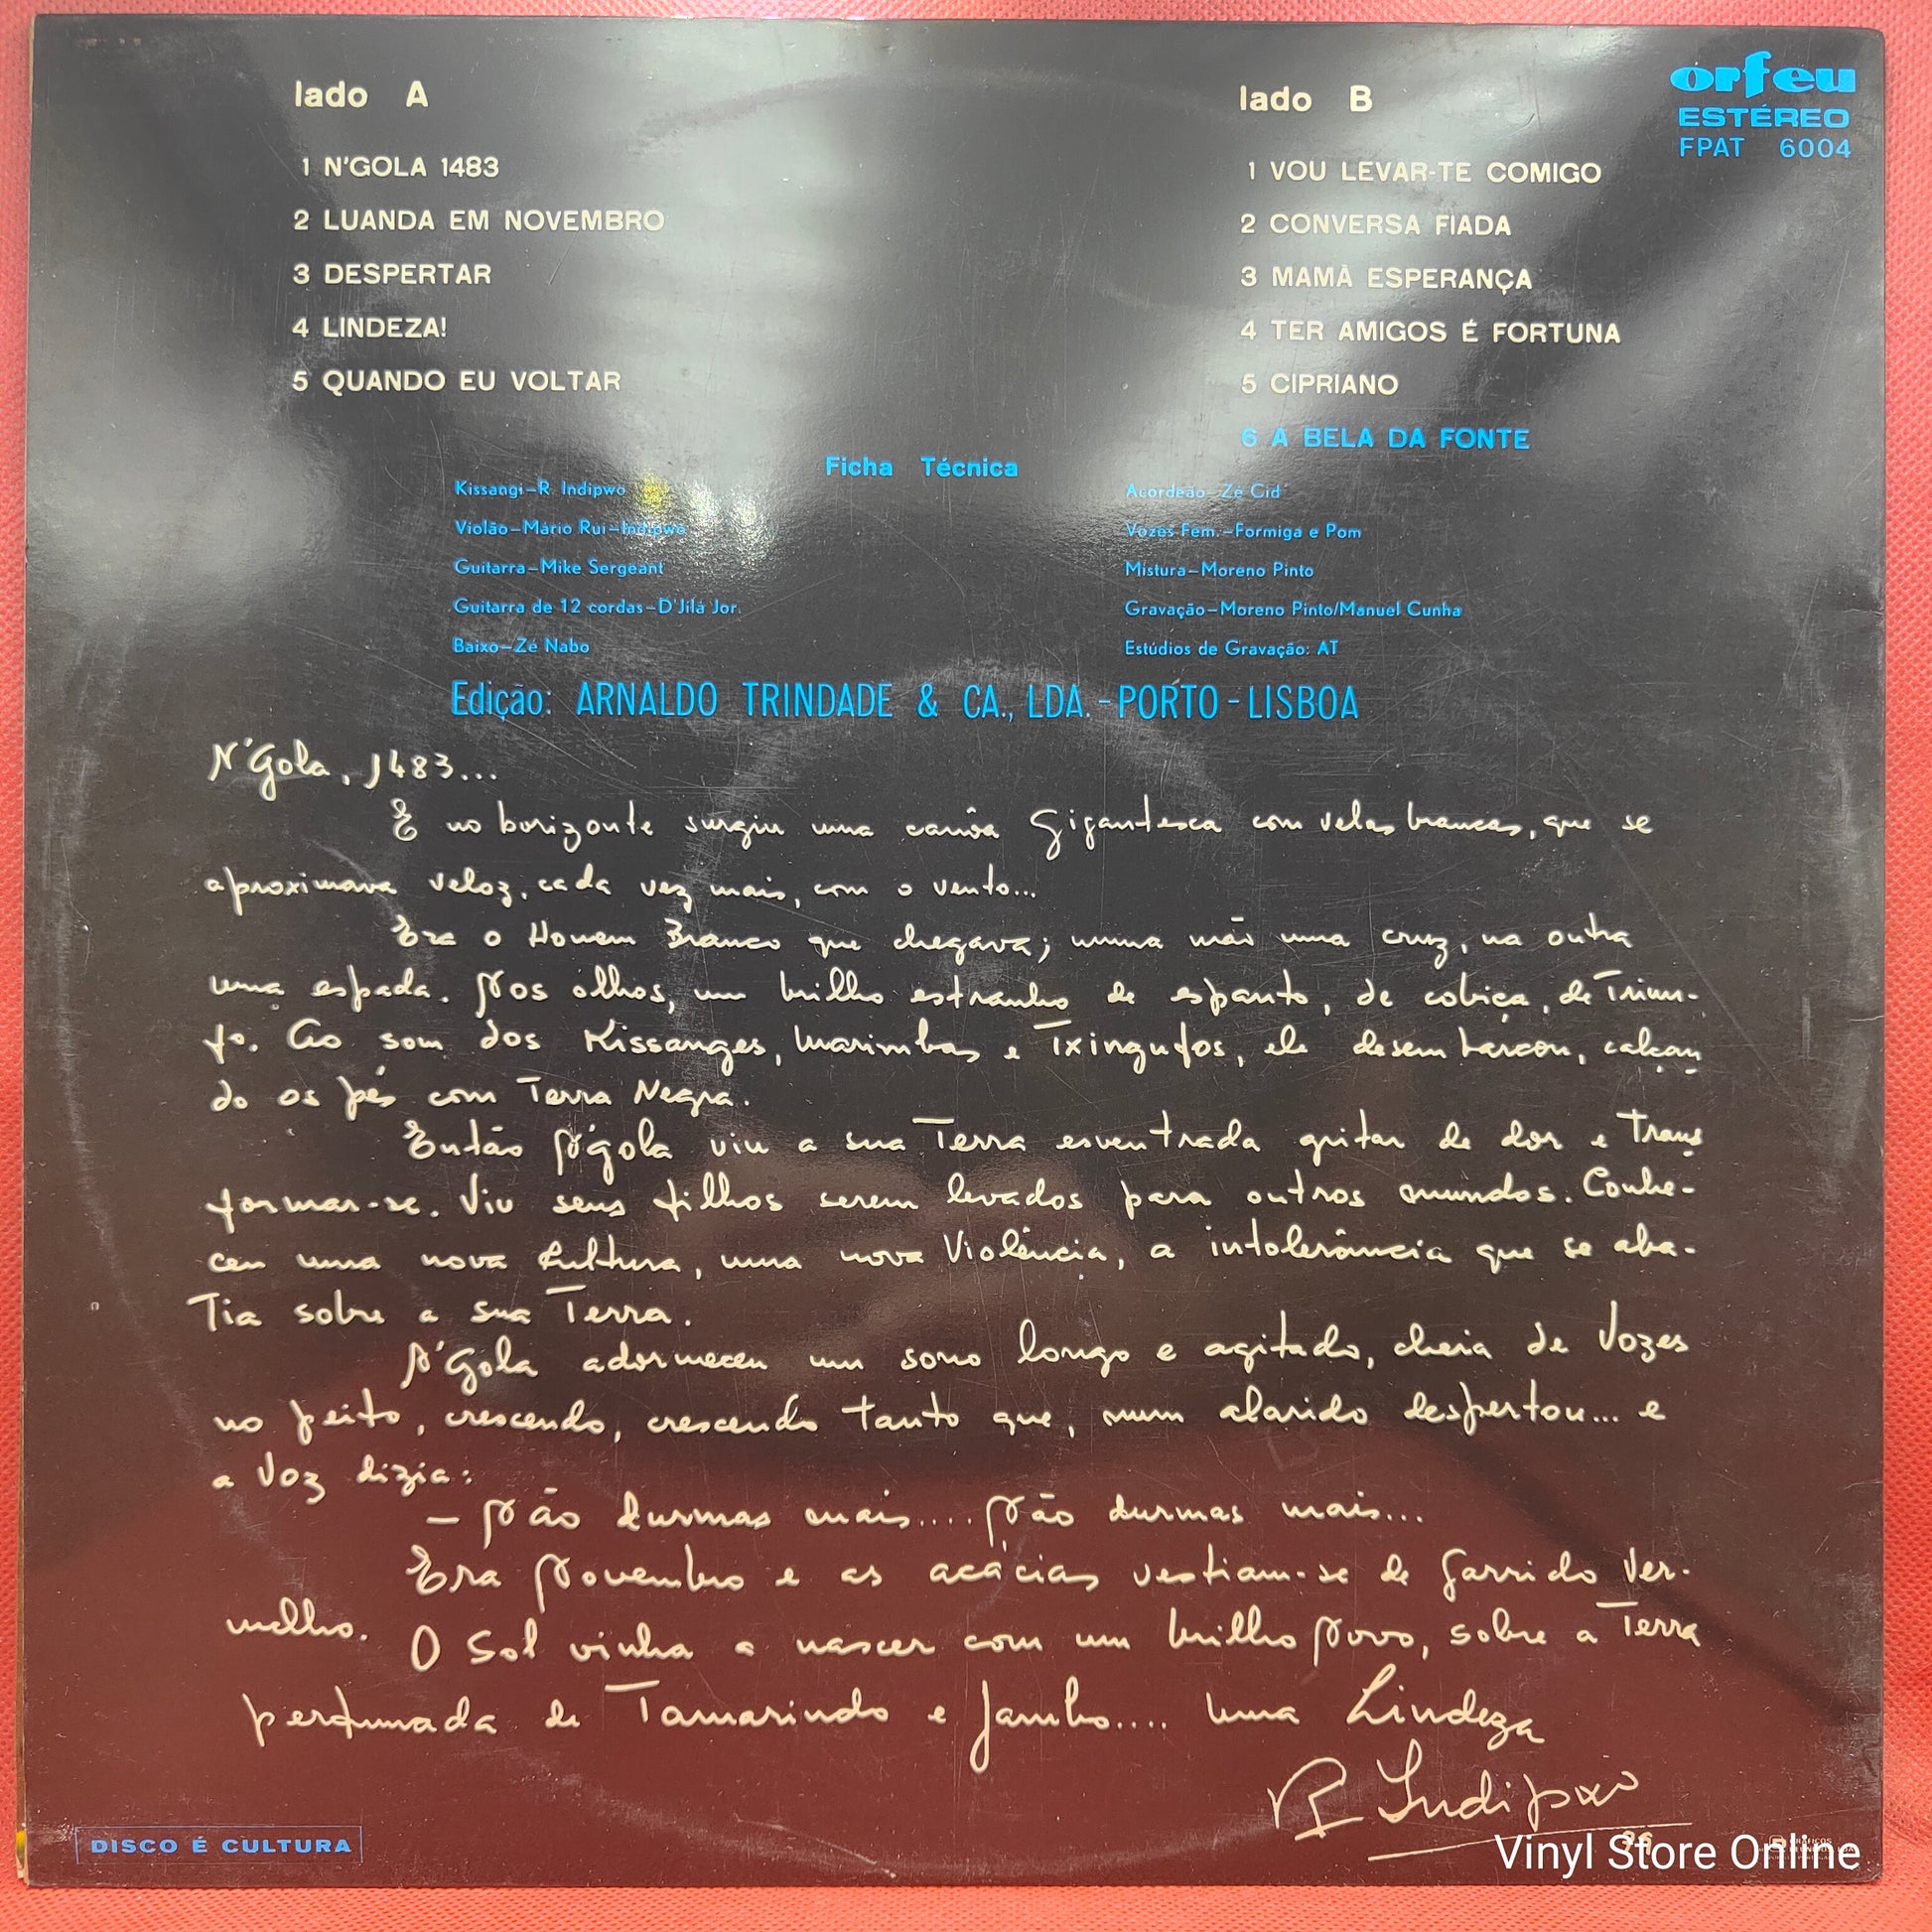 lado A
1 N'GOLA 1483
2 LUANDA EM NOVEMBRO
3 DESPERTAR
4 LINDEZA!
5 QUANDO EU VOLTAR
lado B
1 VOU LEVAR-TE COMIGO
2 CONVERSA FIADA
3 MAMÃ ESPERANÇA
4 TER AMIGOS É FORTUNA
5 CIPRIANO
6 A BELA DA FONTE
orfeu
ESTÉREO
FPAT 6004
Ficha Técnica
Kissangi—R. Indipwo
Violão—Mário Rui—Indipwo
Guitarra—Mike Sergeant
Guitarra de 12 cordas—D'Jilá Jor.
Baixo—Zé Nabo
Acordeão—Zé Cid
Vozes Fem.—Formiga e Pom
Mistura—Moreno Pinto
Gravação—Moreno Pinto/Manuel Cunha
Estúdios de Gravação: AT
Edição: ARNALDO TRINDADE & CA., LDA. - PORTO - LISBOA
N'Gola, 1483...
E no horizonte surgiu uma canôa gigantesca com velas brancas, que se
aproximava veloz, cada vez mais, com o vento...
Era o Homem Branco que chegava; numa mão uma cruz, na outra
uma espada. Nos olhos, um brilho estranho de espanto, de cobiça, de Triun-
fo. Ao som dos Kissanges, Marimbas e Txingufos, ele desembarcou, calçan
do os pés com Terra Negra.
Então N'gola viu a sua Terra esventrada gritar de dor e Trans
formar-se. Viu seus filhos serem levados para outros mundos. Conhe-
ceu uma nova Cultura, uma nova Violência, a intolerância que se aba-
Tia sobre a sua Terra.
N'Gola adormeceu um sono longo e agitado, cheia de Vozes
no peito, crescendo, crescendo tanto que, num alarido despertou... e
a Voz dizia:
— Não durmas mais.... Não durmas mais...
Era Novembro e as acácias vestiam-se de garrido Ver-
melho.
O Sol vinha a nascer com um brilho Novo, sobre a Terra
perfumada de Tamarindo e Jambo.... Uma Lindeza
R Indipwo
DISCO É CULTURA
Vinyl Store Online